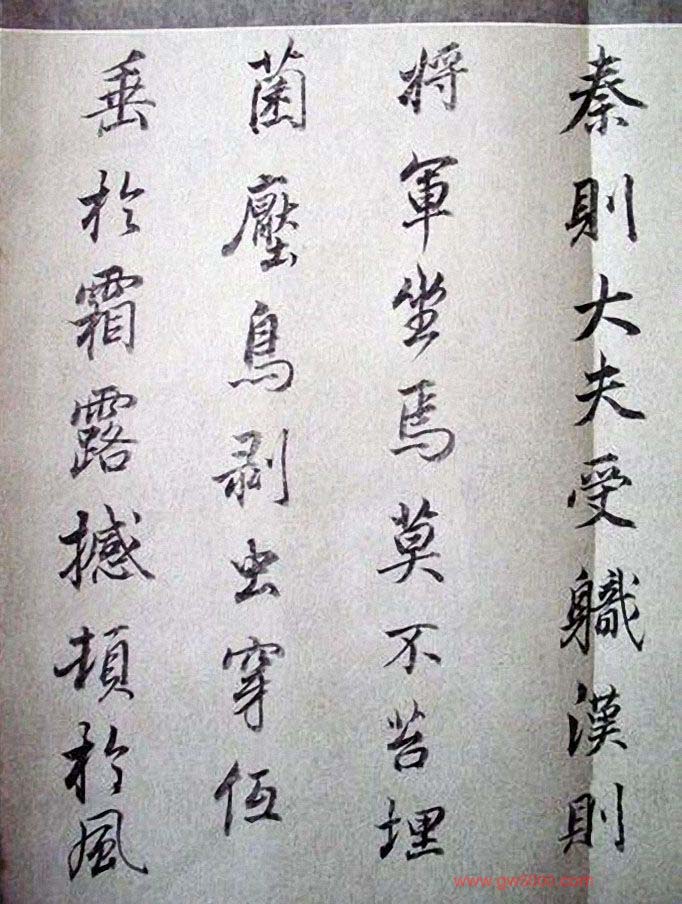 秦則大夫受軄漢則
將軍坐焉莫不苔埋
菌壓鳥剝虫穿低
垂於霜露撼頓於風